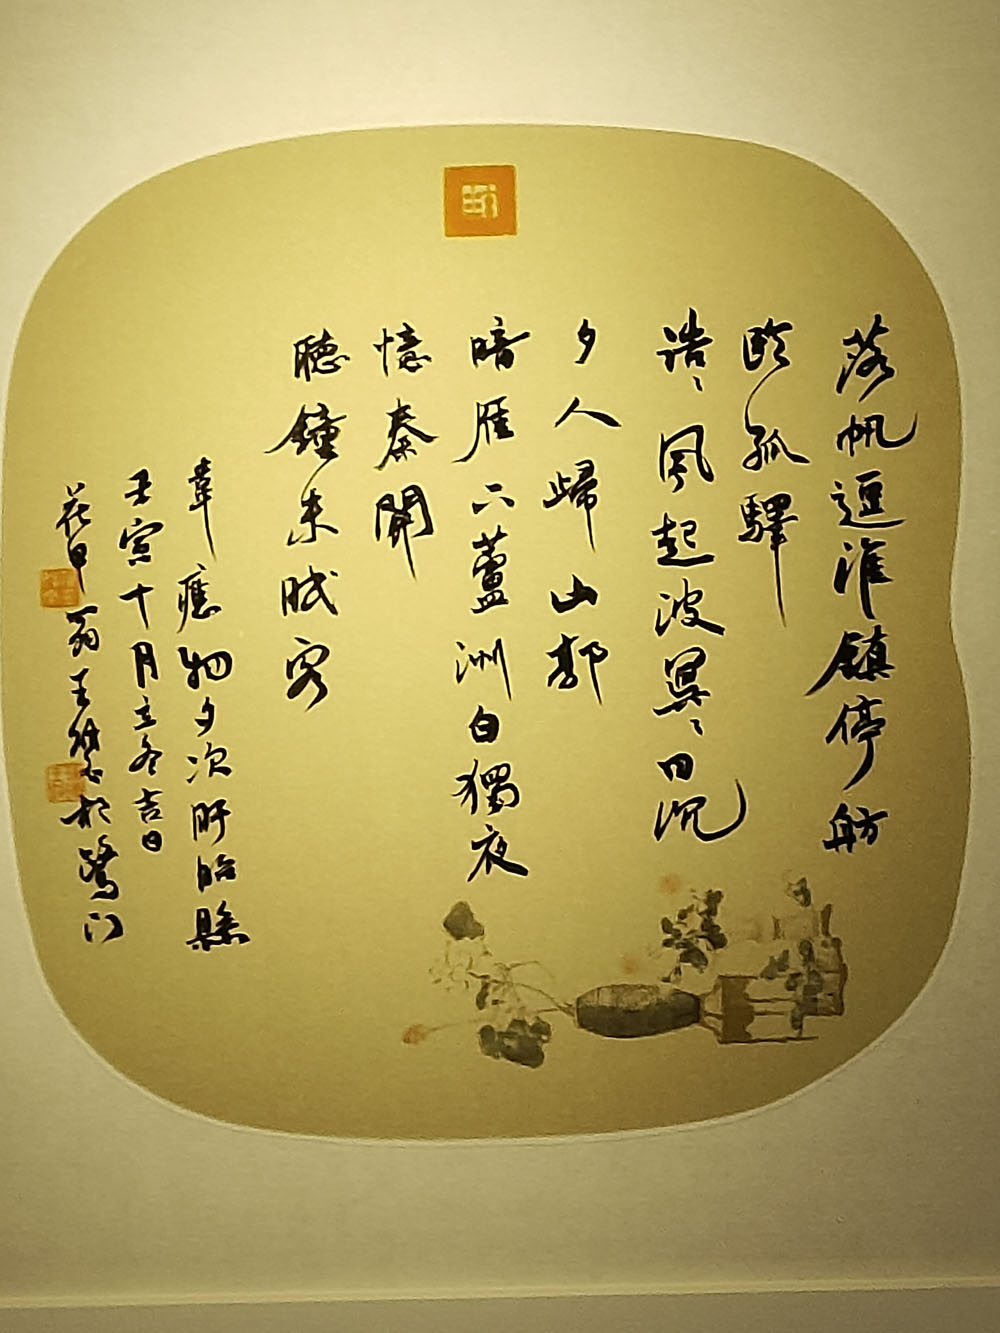 落帆逗淮鎮停舫
臨孤驛
浩〻風起波冥〻日沉
夕人歸山郭
暗雁下蘆洲白獨夜
憶秦關
聽鐘未眠客
韋應物夕次盱眙縣
壬寅十月立冬吉日
花甲翁王於鷺门